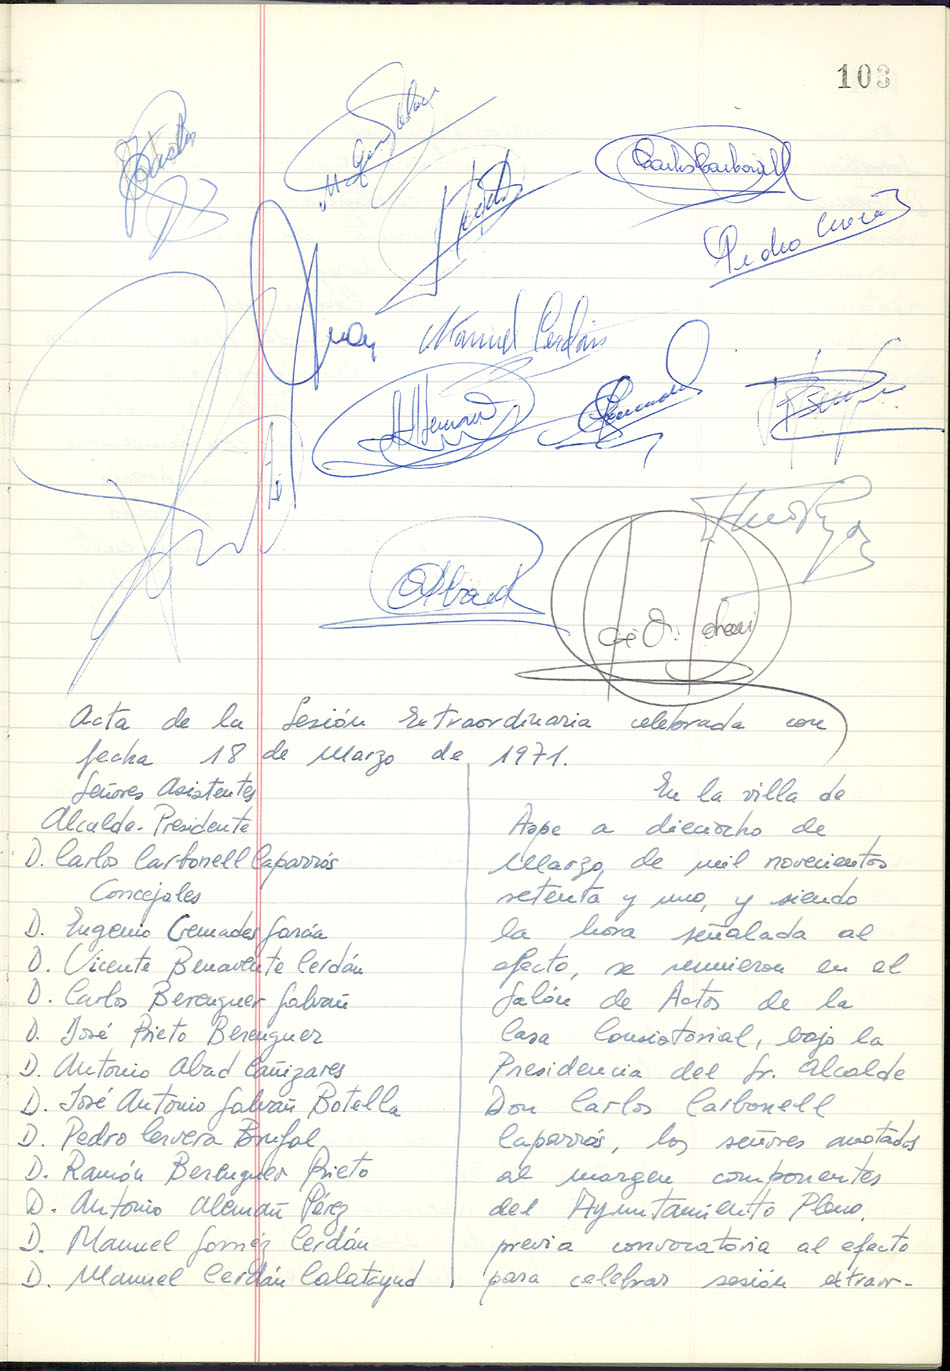 103
Carlos Carbonell
Pedro
Juan
Manuel Cerdán
Abad
Acta de la Sesión Extraordinaria celebrada con
fecha 18 de Marzo de 1971.
Señores Asistentes
Alcalde-Presidente
D. Carlos Carbonell Caparrós
Concejales
D. Eugenio Cremades García
D. Vicente Benavente Cerdán
D. Carlos Berenguer Galvañ
D. José Prieto Berenguer
D. Antonio Abad Cañizares
D. José Antonio Galvañ Botella
D. Pedro Cervera Brufal
D. Ramón Berenguer Prieto
D. Antonio Alemañ Pérez
D. Manuel Gómez Cerdán
D. Manuel Cerdán Calatayud
En la villa de
Aspe a dieciocho de
Marzo, de mil novecientos
setenta y uno, y siendo
la hora señalada al
efecto, se reunieron en el
Salón de Actos de la
Casa Consistorial, bajo la
Presidencia del Sr. Alcalde
Don Carlos Carbonell
Caparrós, los señores anotados
al margen componentes
del Ayuntamiento Pleno,
previa convocatoria al efecto
para celebrar sesión extraor-